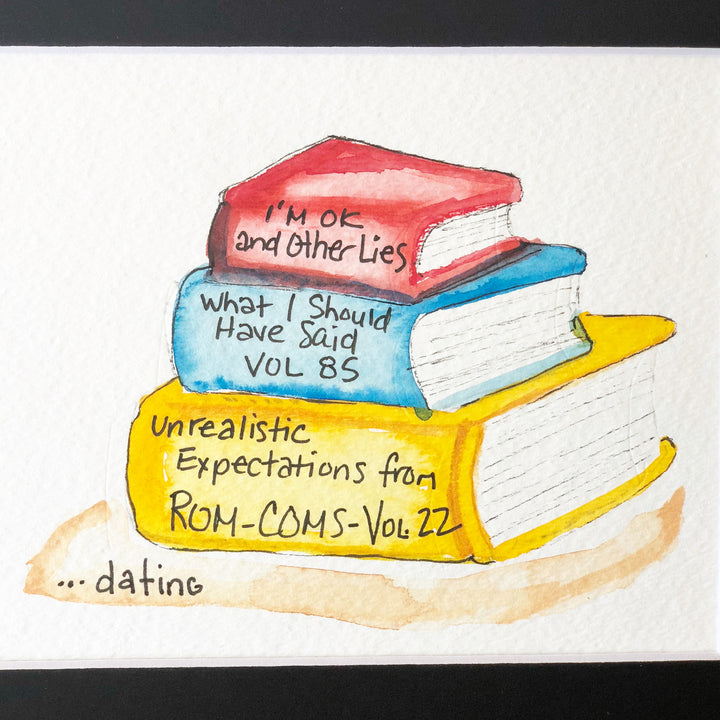 I'M OK
and Other Lies
What I Should
Have Said
VOL 85
Unrealistic
Expectations from
ROM-COMS-VOL. 22
... dating